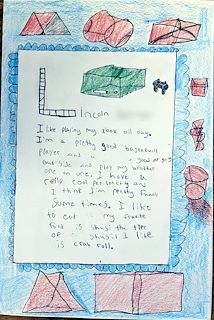 Lincoln
I like playing my xbox all day.
I'm a pretty good basketball
player and a good at going
outside and play my brother
one on one. I have a
really cool personality and
I think I'm pretty funny
some times. I like
to eat my favorite
food is shusi the type
of shusi I like
is crab roll.